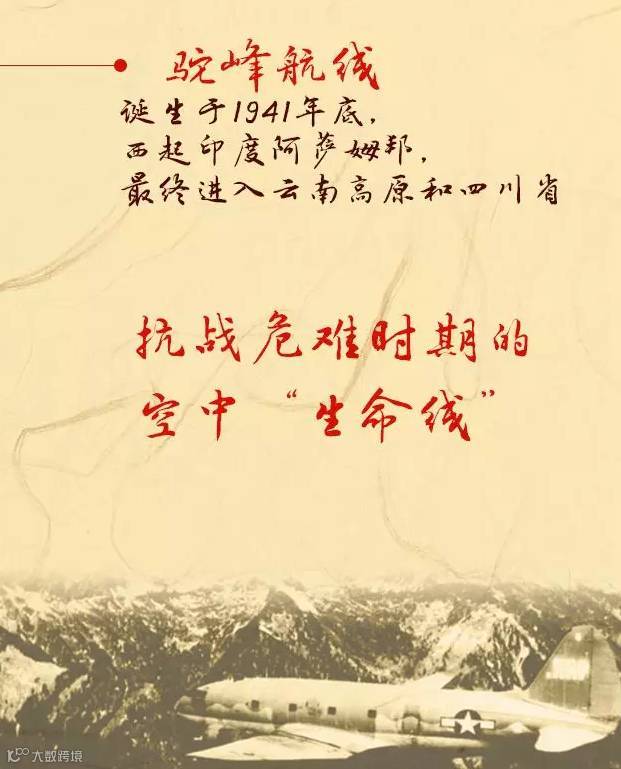 驼峰航线
诞生于1941年底，
西起印度阿萨姆邦，
最终进入云南高原和四川省
抗战危难时期的
空中“生命线”
大数跨境